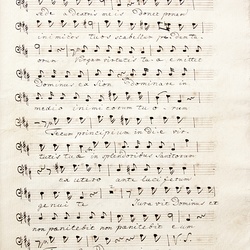 sede a dextris meis Donec ponam
inimicos tuos scabellum pedum tu
orum Virgam virtutis tuae emittet
Dominus ex Sion Dominare in
medio inimicorum tuorum
Tecum principium in die vir
tutis tuae in splendoribus Sanctorum
ex utero ante luciferum
genui te Juravit Dominus et
non poenitebit non poenitebit eum